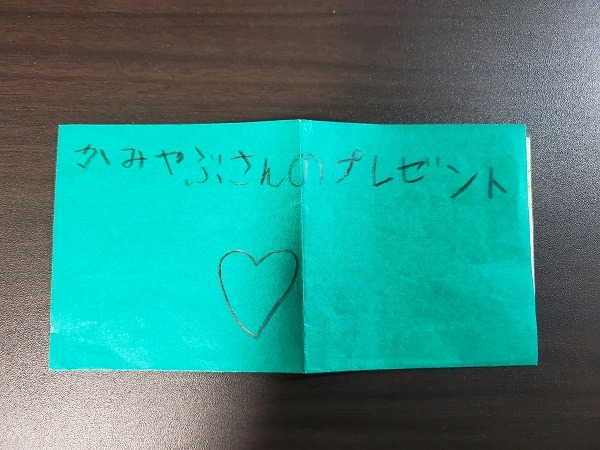 かみやぶさんのプレゼント